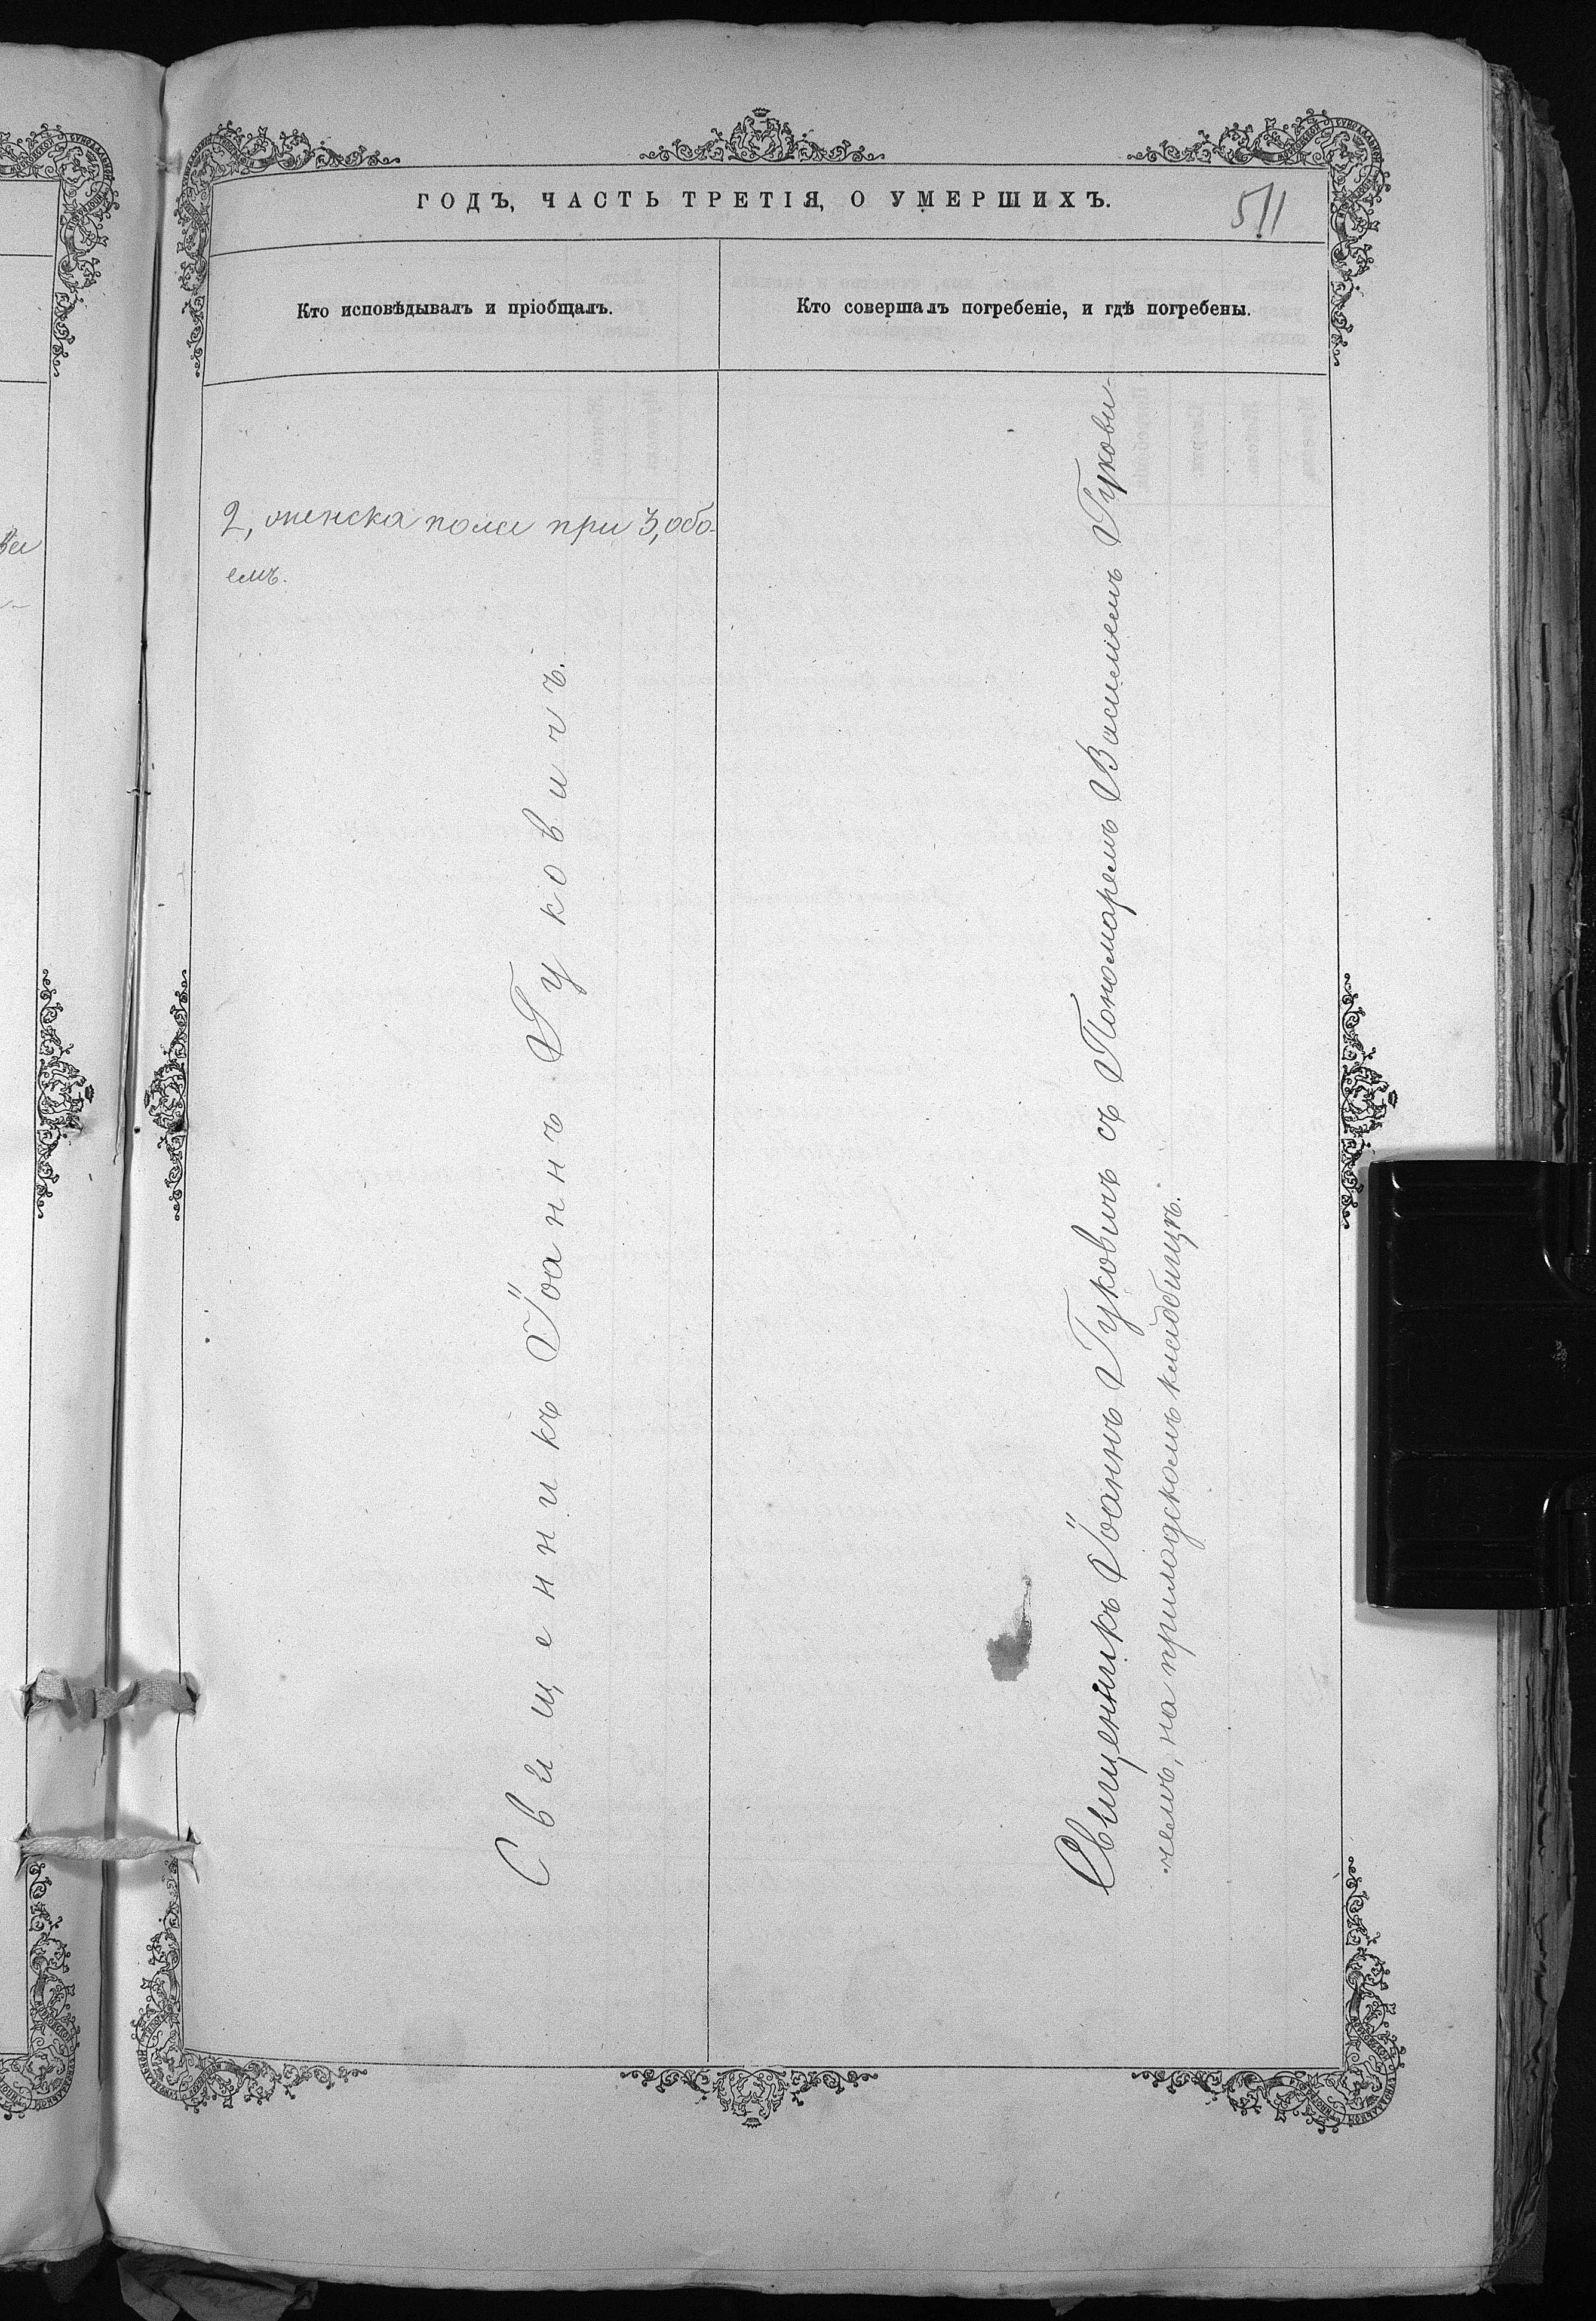 ГОДЪ, ЧАСТЬ ТРЕТІЯ, О УМЕРШИХЪ.
511
Кто исповѣдывалъ и пріобщалъ.
Кто совершалъ погребеніе, и гдѣ погребены.
2, женска пола при 3, обо-
емъ.
Священникъ Іоаннъ Гуковичъ.
Священникъ Іоаннъ Гуковичъ съ Пономаремъ Василіемъ Гукови-
чемъ, на приходскомъ кладбищѣ.